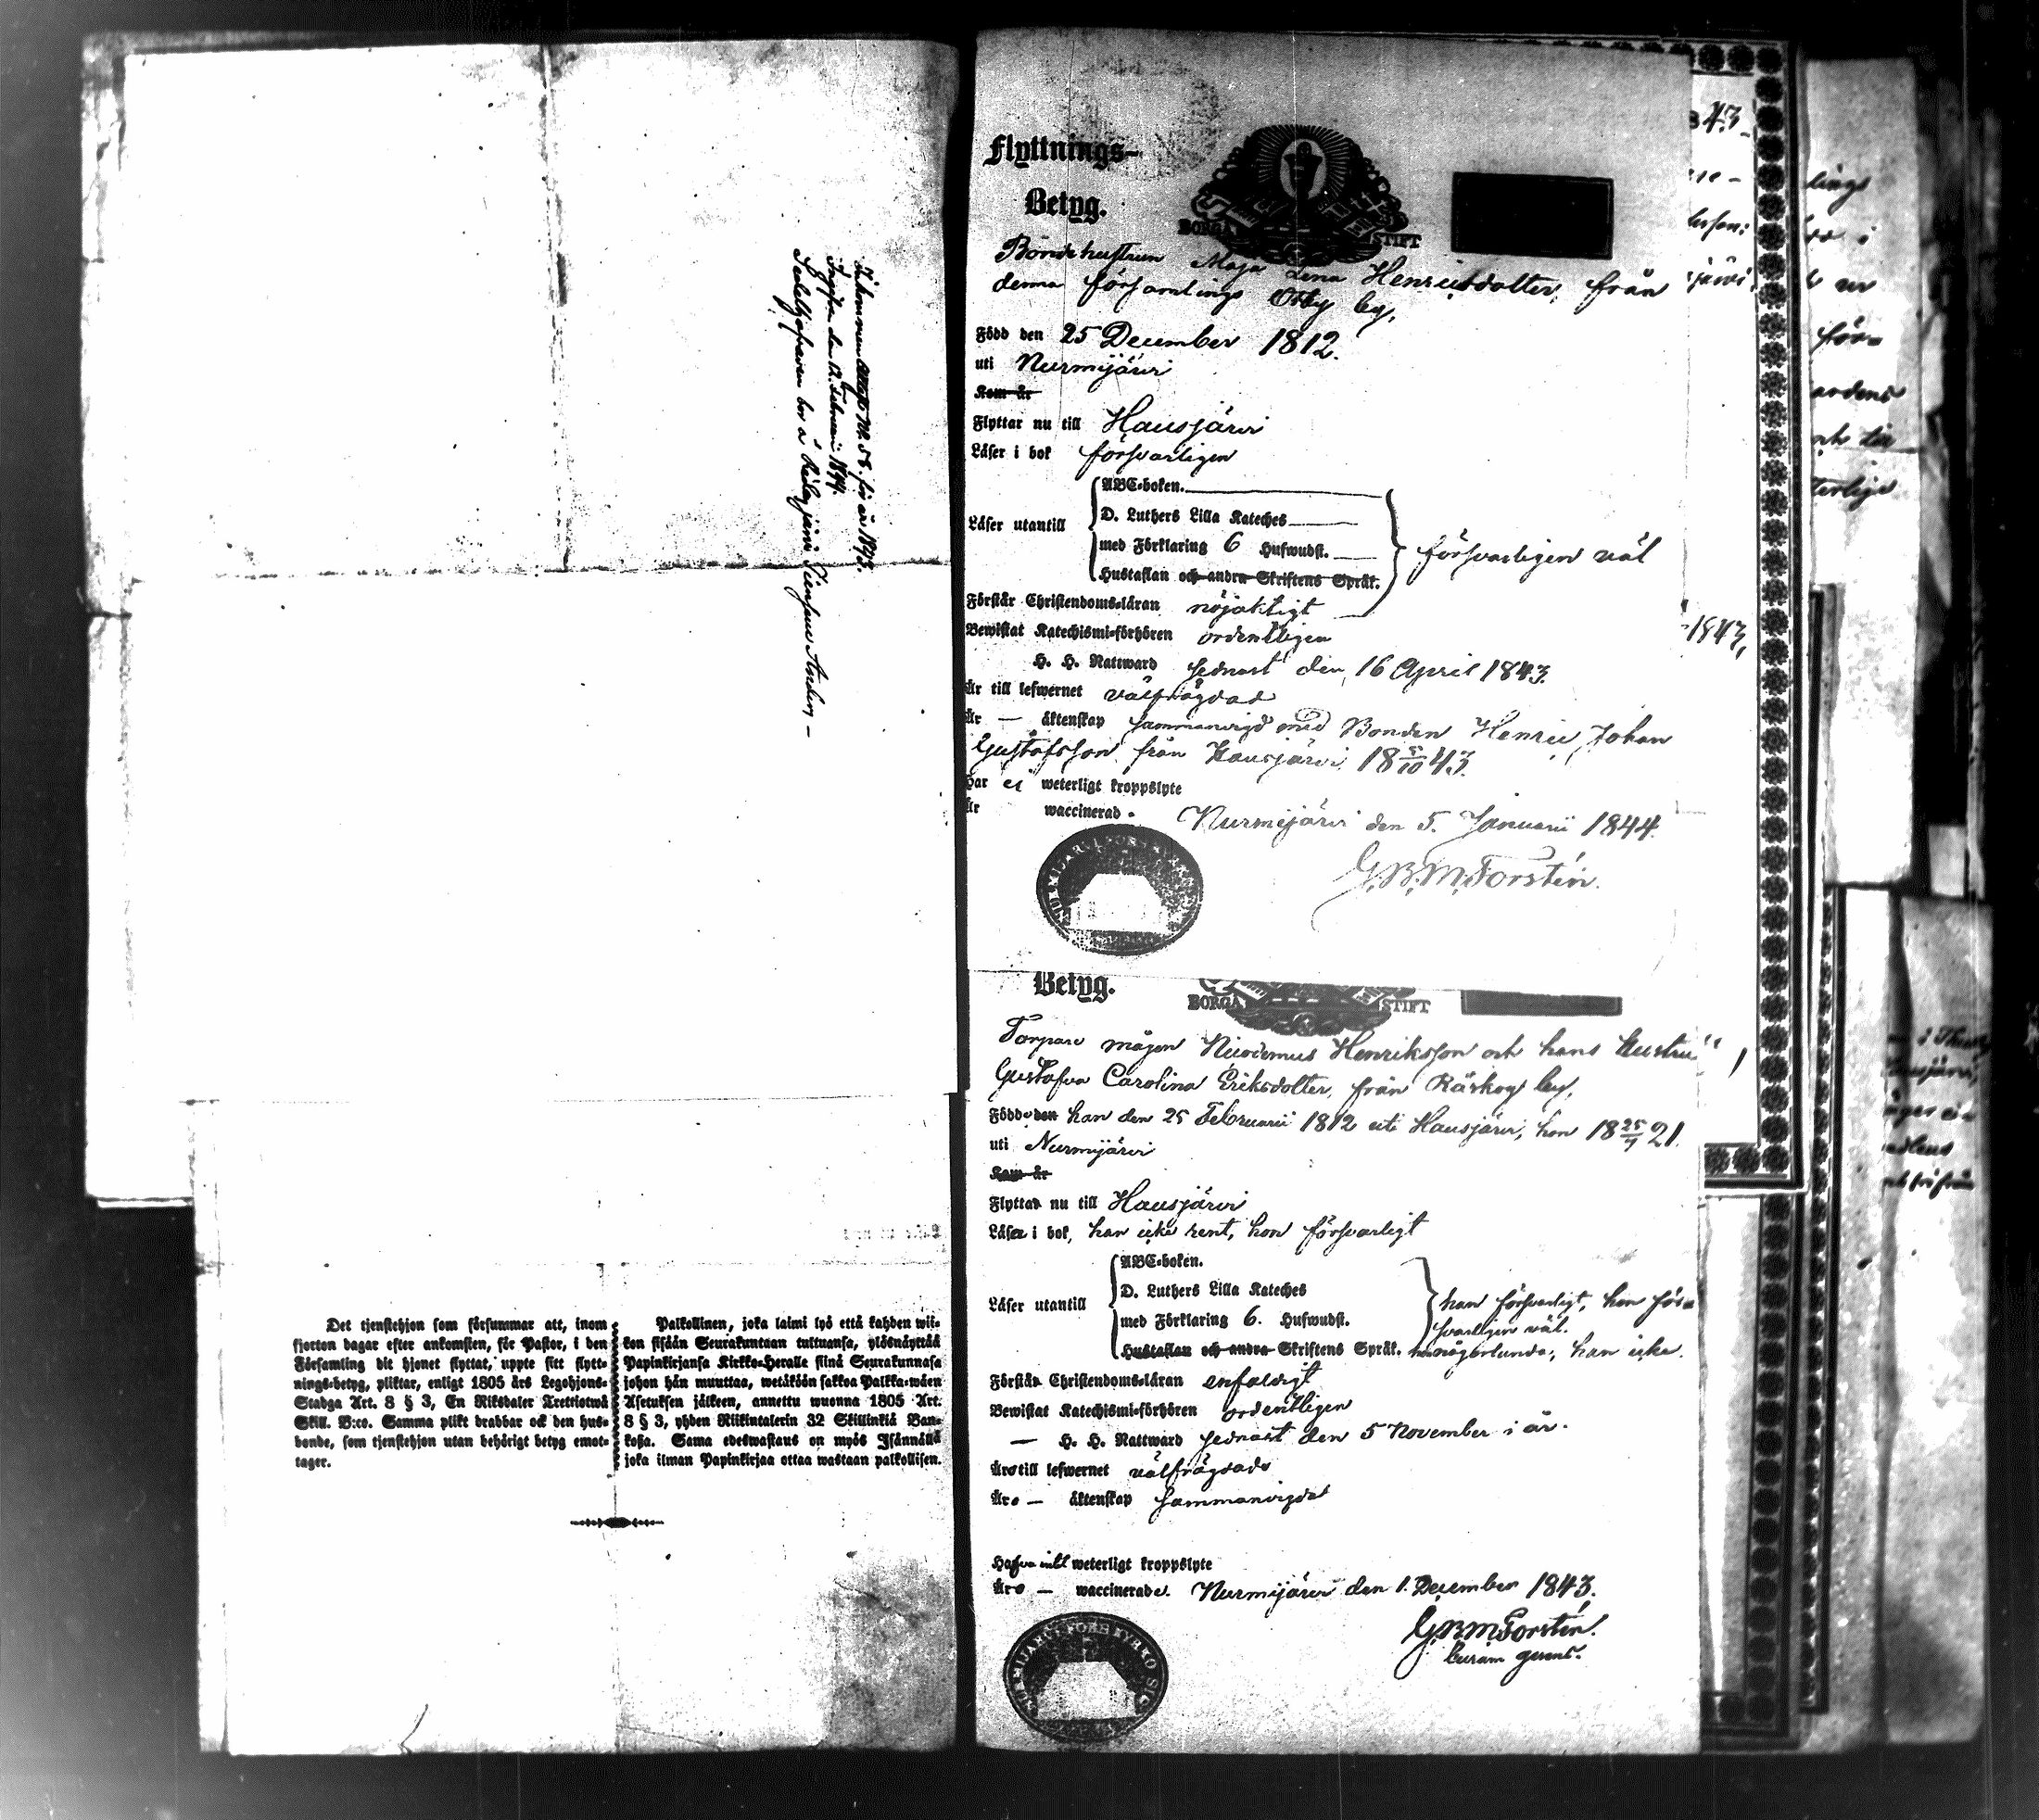 Inkommen attest No. 58. för år 1843.
Ingifven den 12. Februari 1844.
Sedelhafvaren bor å
Det tjenstehjon som försummar att, inom
fjorton dagar efter ankomsten, för Pastor, i den
Församling dit hjonet flyttat, uppte sitt flytt-
nings-betyg, pliktar, enligt 1805 års Legohjons-
Stadga Art. 8 § 3, En Riksdaler Trettiotwå
Skill. B:co. Samma plikt drabbar ock den hus-
bonde, som tjenstehjon utan behörigt betyg emot-
tager.
Palkollinen, joka laimi lyö että kahden wii-
kon sisään Seurakuntaan tultuansa, ylösnäyttää
Papinkirjansa Kirkko-Heralle siinä Seurakunnasa
johon hän muuttaa, wetäköön sakkoa Palkka-wäen
Asetuksen jälkeen, annettu wuonna 1805 Art.
8 § 3, yhden Riikintalerin 32 Skillinkiä Ban-
koßa. Sama edeswastaus on myös Isännällä
joka ilman Papinkirjaa ottaa wastaan palkollisen.
Flyttnings-
Betyg.
BORGÅ STIFT
Bondehustrun Maja Lena Henricsdotter, från
denna församlings Ottby by,
Född den 25 December 1812.
uti Nurmijärvi
Kom år
Flyttar nu till Hausjärvi
Läser i bok försvarligen
ABC-boken.
D. Luthers Lilla Kateches
Läser utantill
med Förklaring 6 Hufwudst.
försvarligen väl
Hustaflan och andra Skriftens Språk.
Förstår Christendoms-läran nöjaktigt
Bewistat Katechismi-förhören ordentligen
H. H. Nattward sednast den 16 April 1843.
Är till lefwernet välfrägdad
Är — äktenskap sammanvigd med Bonden Henric Johan
Gustafsson från Hausjärvi 18 5/10 43.
Har ej weterligt kroppslyte
Är waccinerad.
Nurmijärvi den 5. Januarii 1844.
G.B.M. Forstén.
Betyg.
BORGÅ STIFT
Torpare mågen Nicodemus Henriksson och hans hustru
Gustafva Carolina Eriksdotter, från Räskog by,
Födde den han den 25 Februarii 1812 uti Hausjärvi, hon 18 25/7 21.
uti Nurmijärvi
Kom år
Flytta nu till Hausjärvi
Läser i bok, han icke rent, hon försvarligt
ABC-boken.
D. Luthers Lilla Kateches
Läser utantill
med Förklaring 6. Hufwudst.
han försvarligt, hon för-
svarligen väl.
Hustaflan och andra Skriftens Språk. hon någorlunda, han icke.
Förstå Christendoms-läran enfaldigt
Bewistat Katechismi-förhören ordentligen
— H. H. Nattward sednast den 5 November i år.
Äro till lefwernet välfrägdade
Äro — äktenskap sammanvigde
Hafva intet weterligt kroppslyte
Äro — waccinerade. Nurmijärvi den 1. December 1843.
G.B.M. Forstén.
NURMIJÄRVI FÖRS KYRKO SIG
1843,